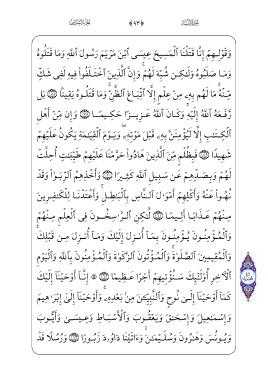 ﴿٩٣﴾
وَقَوْلِهِمْ إِنَّا قَتَلْنَا الْمَسِيحَ عِيسَى ابْنَ مَرْيَمَ رَسُولَ اللَّهِ وَمَا قَتَلُوهُ
وَمَا صَلَبُوهُ وَلَٰكِن شُبِّهَ لَهُمْ ۚ وَإِنَّ الَّذِينَ اخْتَلَفُوا فِيهِ لَفِي شَكٍّ
مِّنْهُ ۚ مَا لَهُم بِهِ مِنْ عِلْمٍ إِلَّا اتِّبَاعَ الظَّنِّ ۚ وَمَا قَتَلُوهُ يَقِينًا ﴿١٥٧﴾ بَل
رَّفَعَهُ اللَّهُ إِلَيْهِ ۚ وَكَانَ اللَّهُ عَزِيزًا حَكِيمًا ﴿١٥٨﴾ وَإِن مِّنْ أَهْلِ
الْكِتَابِ إِلَّا لَيُؤْمِنَنَّ بِهِ قَبْلَ مَوْتِهِ ۖ وَيَوْمَ الْقِيَامَةِ يَكُونُ عَلَيْهِمْ
شَهِيدًا ﴿١٥٩﴾ فَبِظُلْمٍ مِّنَ الَّذِينَ هَادُوا حَرَّمْنَا عَلَيْهِمْ طَيِّبَاتٍ أُحِلَّتْ
لَهُمْ وَبِصَدِّهِمْ عَن سَبِيلِ اللَّهِ كَثِيرًا ﴿١٦٠﴾ وَأَخْذِهِمُ الرِّبَا وَقَدْ
نُهُوا عَنْهُ وَأَكْلِهِمْ أَمْوَالَ النَّاسِ بِالْبَاطِلِ ۚ وَأَعْتَدْنَا لِلْكَافِرِينَ
مِنْهُمْ عَذَابًا أَلِيمًا ﴿١٦١﴾ لَّٰكِنِ الرَّاسِخُونَ فِي الْعِلْمِ مِنْهُمْ
وَالْمُؤْمِنُونَ يُؤْمِنُونَ بِمَا أُنزِلَ إِلَيْكَ وَمَا أُنزِلَ مِن قَبْلِكَ ۚ
وَالْمُقِيمِينَ الصَّلَاةَ ۚ وَالْمُؤْتُونَ الزَّكَاةَ وَالْمُؤْمِنُونَ بِاللَّهِ وَالْيَوْمِ
الْآخِرِ أُولَٰئِكَ سَنُؤْتِيهِمْ أَجْرًا عَظِيمًا ﴿١٦٢﴾ ۞ إِنَّا أَوْحَيْنَا إِلَيْكَ
كَمَا أَوْحَيْنَا إِلَىٰ نُوحٍ وَالنَّبِيِّينَ مِن بَعْدِهِ ۚ وَأَوْحَيْنَا إِلَىٰ إِبْرَاهِيمَ
وَإِسْمَاعِيلَ وَإِسْحَاقَ وَيَعْقُوبَ وَالْأَسْبَاطِ وَعِيسَىٰ وَأَيُّوبَ
وَيُونُسَ وَهَارُونَ وَسُلَيْمَانَ ۚ وَآتَيْنَا دَاوُودَ زَبُورًا ﴿١٦٣﴾ وَرُسُلًا قَدْ